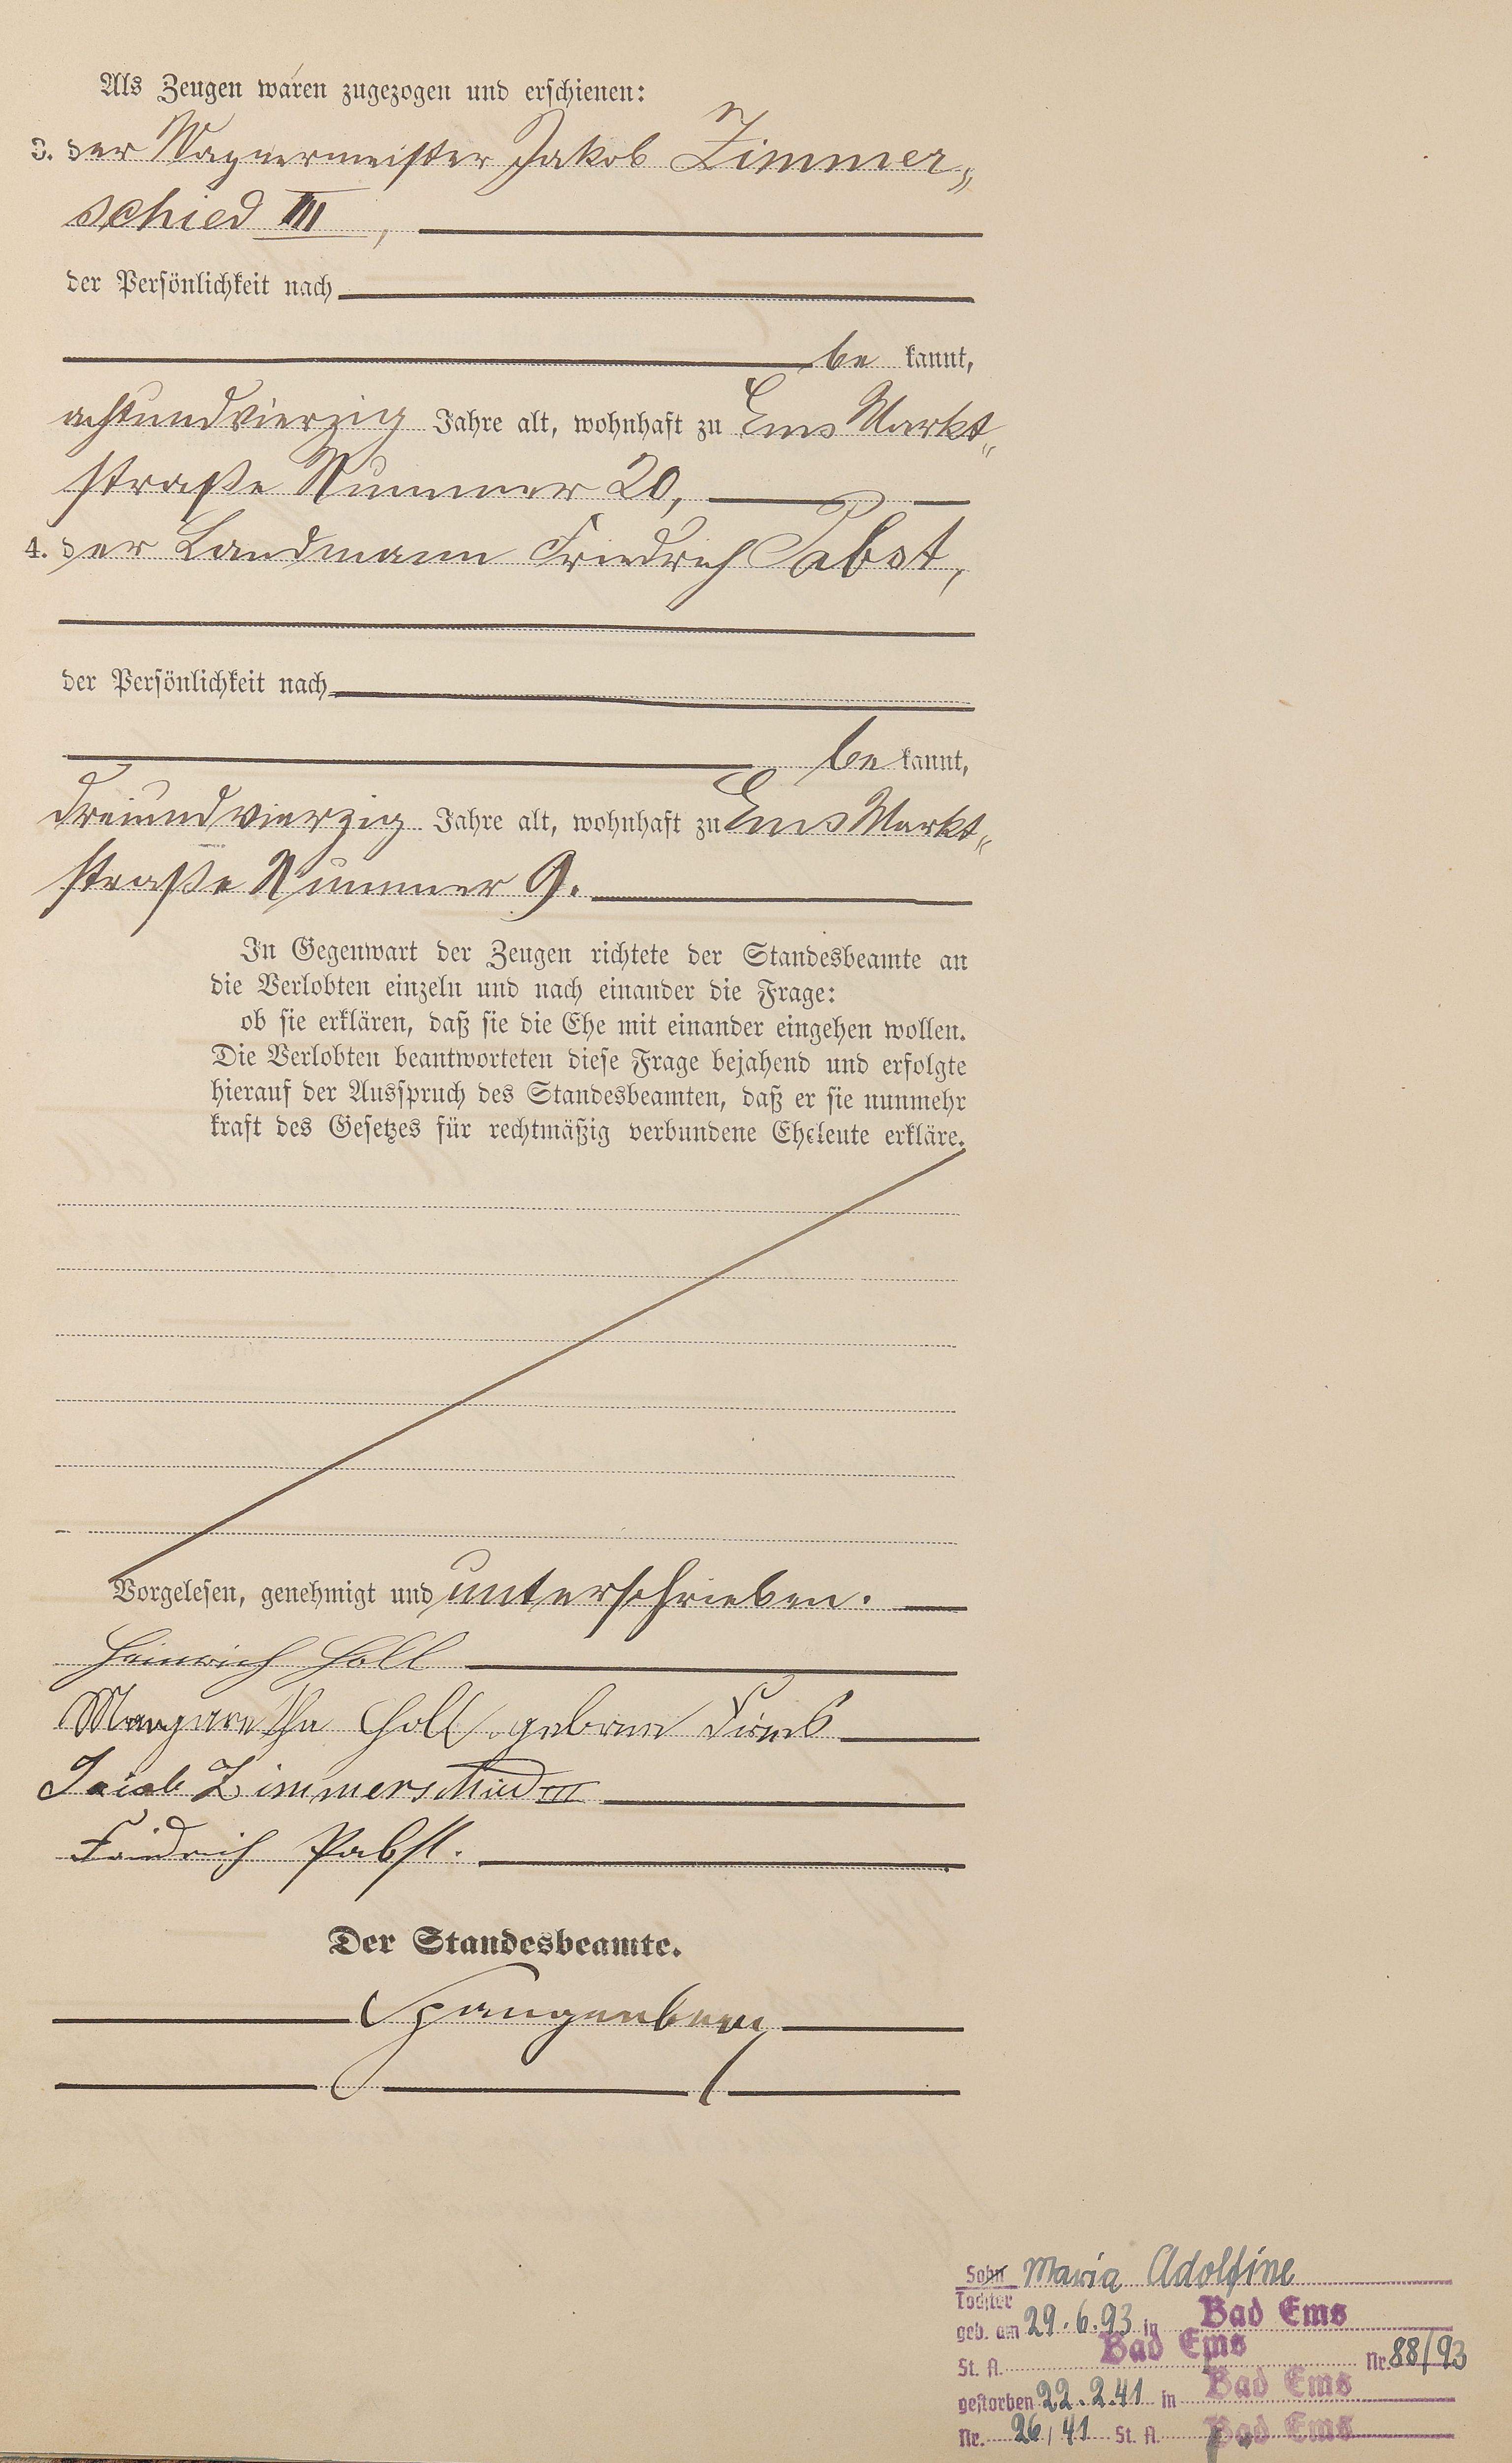 Als Zeugen waren zugezogen und erschienen:
3. der Wagnermeister Jakob Zimmer„
schied III,
der Persönlichkeit nach
be kannt,
achtundvierzig Jahre alt, wohnhaft zu Ems Markt„
straße Nummer 20,
4. der Landmann Friedrich Pabst,
der Persönlichkeit nach
be kannt,
dreiundvierzig Jahre alt, wohnhaft zu Ems Markt„
straße Nummer 9.
In Gegenwart der Zeugen richtete der Standesbeamte an
die Verlobten einzeln und nach einander die Frage:
ob sie erklären, daß sie die Ehe mit einander eingehen wollen.
Die Verlobten beantworteten diese Frage bejahend und erfolgte
hierauf der Ausspruch des Standesbeamten, daß er sie nunmehr
kraft des Gesetzes für rechtmäßig verbundene Eheleute erkläre.
Vorgelesen, genehmigt und unterschrieben.
Heinrich Holl
Margaretha Holl geborene
Jacob Zimmerschied III
Friedrich Pabst.
Der Standesbeamte.
Spangenberg
Sohn Maria Adolfine
Tochter
geb. am 29.6.93 in Bad Ems
St. A. Bad Ems Nr. 88/93
gestorben 22.2.41 in Bad Ems
Nr. 26/41 St. A. Bad Ems